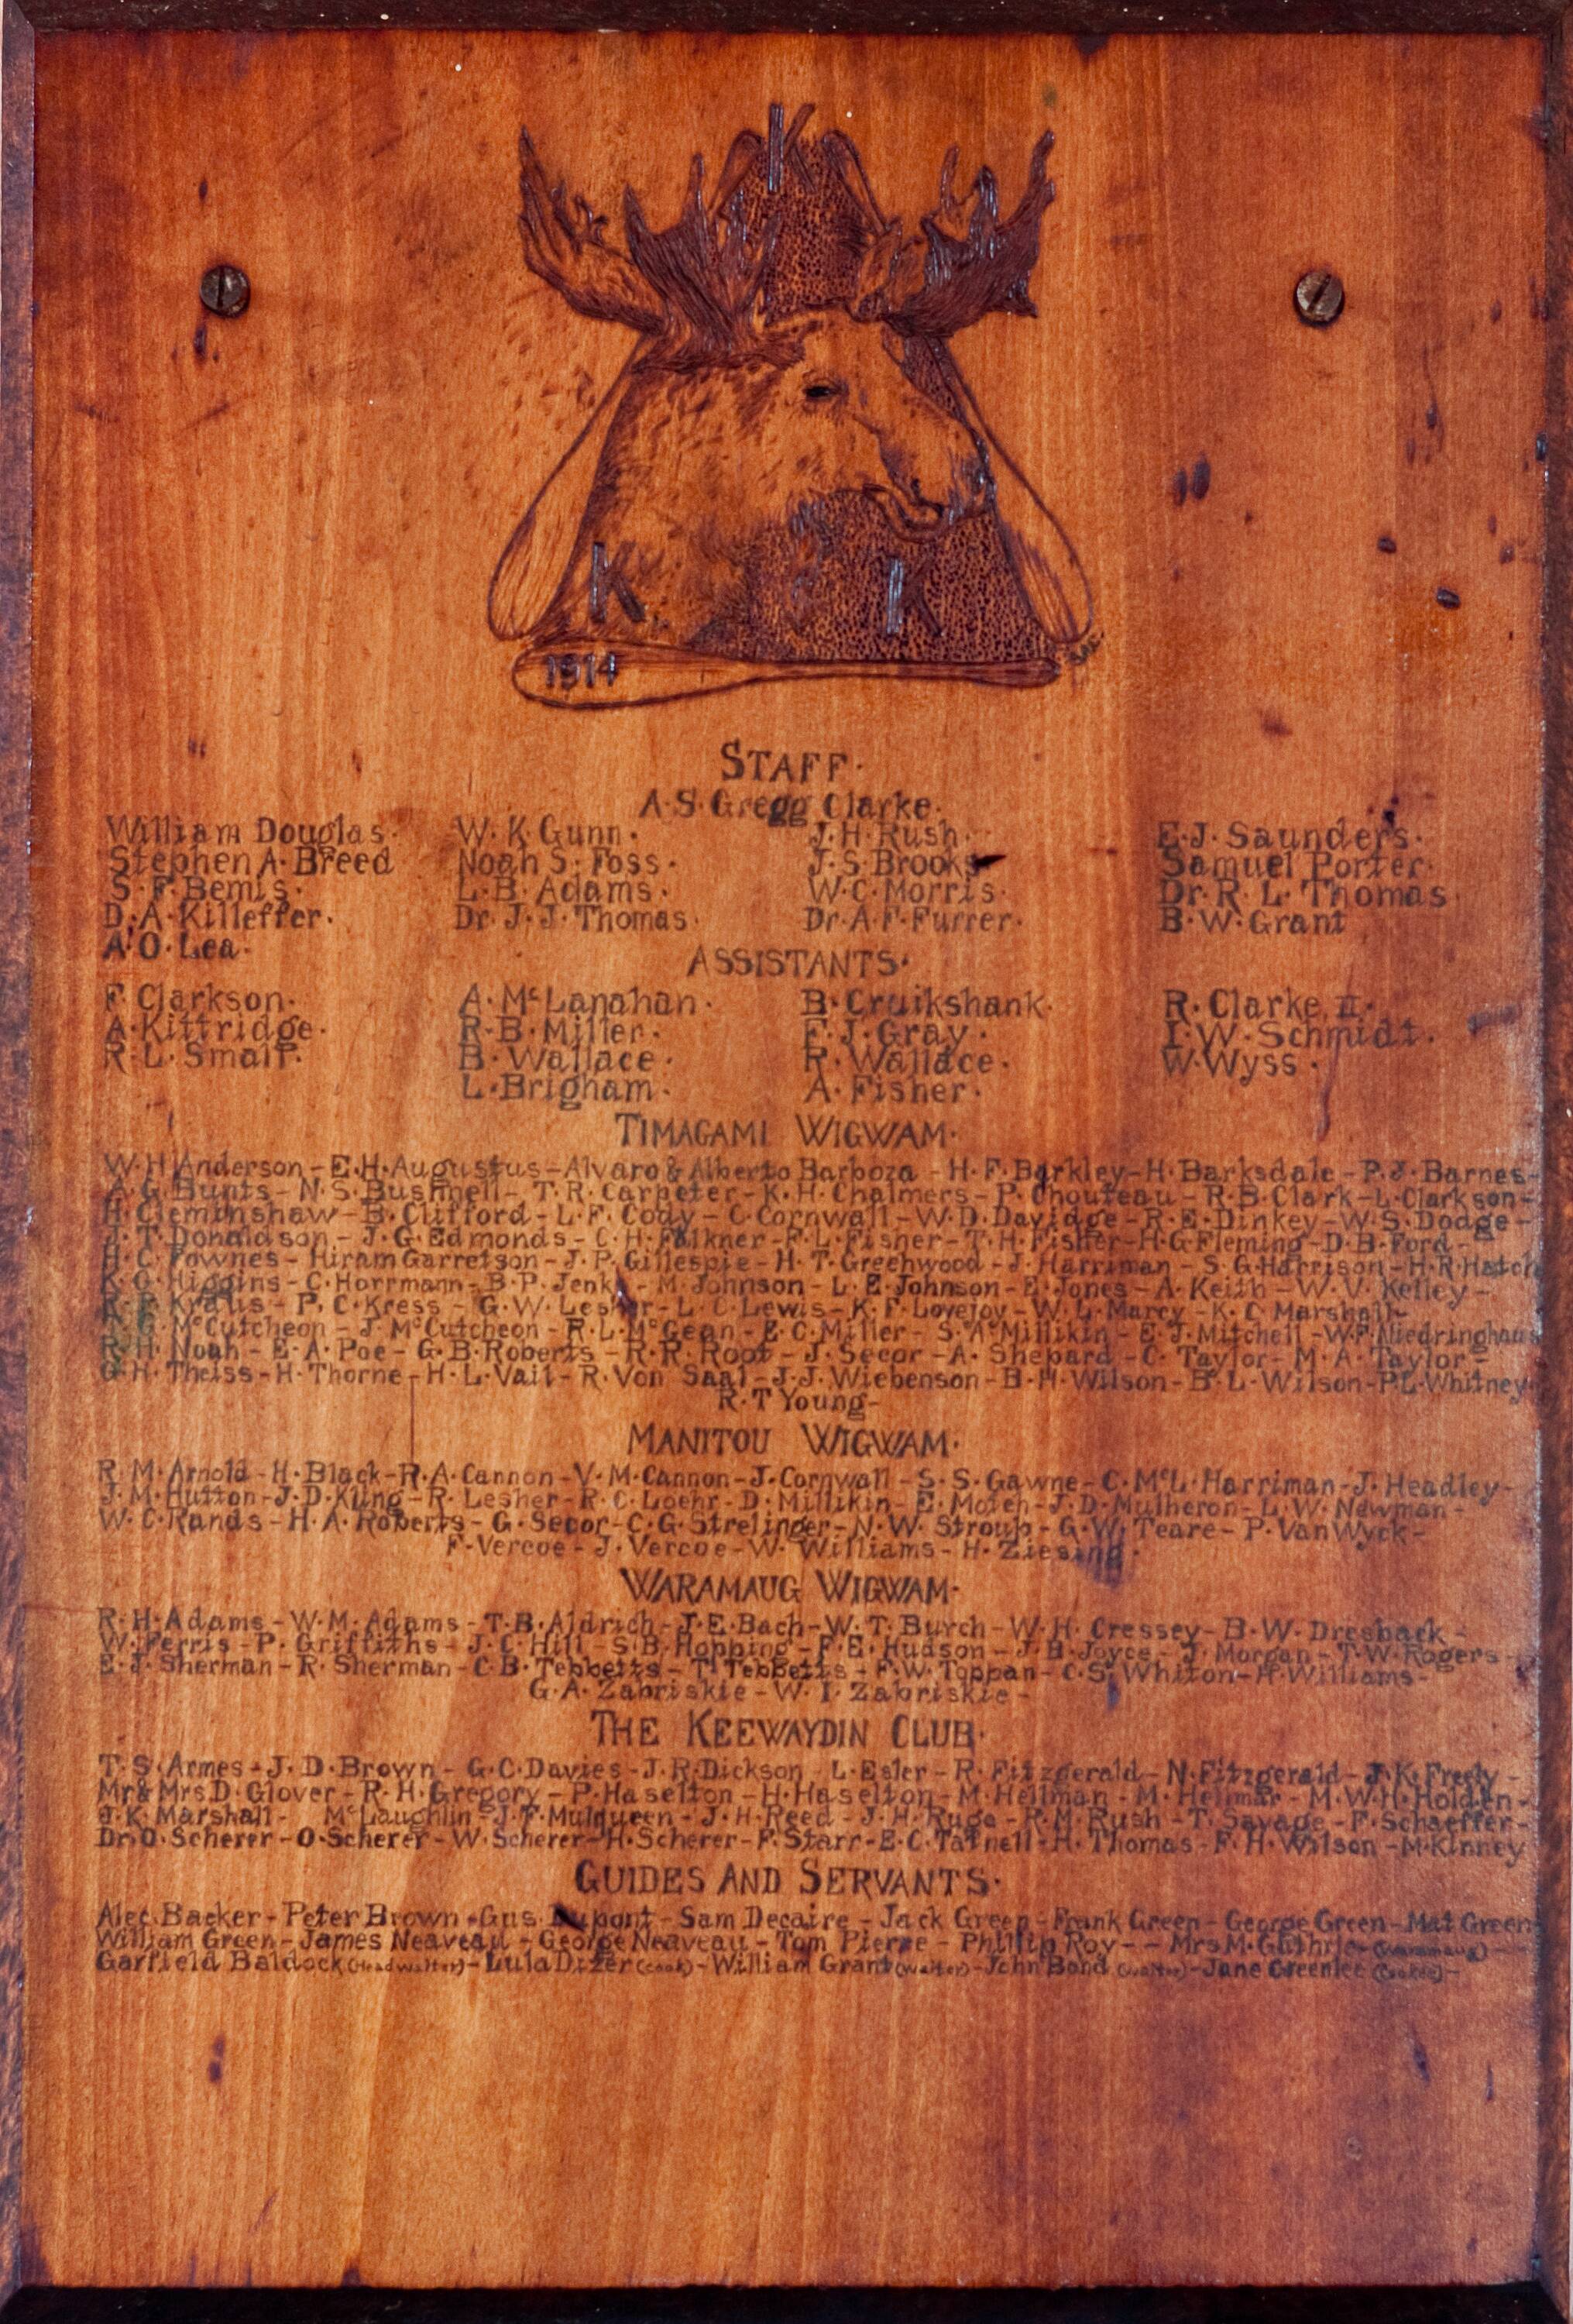 K
K K
1914
STAFF·
A·S·Gregg Clarke·
William Douglas· W·K·Gunn· J·H·Rush· E·J·Saunders·
Stephen A·Breed Noah S·Foss· J·S·Brooks Samuel Porter·
S·F·Bemis· L·B·Adams· W·C·Morris· Dr·R·L·Thomas·
D·A·Killeffer· Dr·J·J·Thomas· Dr·A·F·Furrer· B·W·Grant
A·O·Lea·
ASSISTANTS·
F·Clarkson· A·McLanahan· B·Cruikshank· R·Clarke, II·
A·Kittridge· R·B·Miller· F·J·Gray· I·W·Schmidt·
R·L·Small· B·Wallace· R·Wallace· W·Wyss·
L·Brigham· A·Fisher·
TIMAGAMI WIGWAM·
W·H·Anderson-E·H·Augustus-Alvaro & Alberto Barboza-H·F·Barkley-H·Barksdale-P·J·Barnes-
A·G·Bunts-N·S·Bushnell-T·R·Carpeter-K·H·Chalmers-P·Chouteau-R·B·Clark-L·Clarkson-
H·Cleminshaw-B·Clifford-L·F·Cody-C·Cornwall-W·D·Davidge-R·E·Dinkey-W·S·Dodge-
J·T·Donaldson-J·G·Edmonds-C·H·Falkner-F·L·Fisher-T·H·Fisher-H·G·Fleming-D·B·Ford-
H·C·Fownes-Hiram Garretson-J·P·Gillespie-H·T·Greenwood-J·Harriman-S·G·Harrison-H·R·Hatch
K·G·Higgins-C·Horrmann-B·P·Jenks-M·Johnson-L·E·Johnson-E·Jones-A·Keith-W·V·Kelley-
Kraus-P·C·Kress-G·W·Lesher-L·C·Lewis-K·F·Lovejoy-W·L·Marcy-K·C·Marshall-
G·McCutcheon-J·McCutcheon-R·L·McGean-E·C·Miller-S·A·Millikin-E·J·Mitchell-W·F·Niedringhaus
R·H·Noah-E·A·Poe-G·B·Roberts-R·R·Root-J·Secor-A·Shepard-C·Taylor-M·A·Taylor-
G·H·Theiss-H·Thorne-H·L·Vail-R·Von Saal-J·J·Wiebenson-B·H·Wilson-B·L·Wilson-P·L·Whitney-
R·T·Young-
MANITOU WIGWAM·
R·M·Arnold-H·Black-R·A·Cannon-V·M·Cannon-J·Cornwall-S·S·Gawne-C·McL·Harriman-J·Headley-
J·M·Hutton-J·D·Kling-R·Lesher-R·C·Loehr-D·Millikin-E·Moteh-J·D·Mulheron-L·W·Newman-
W·C·Rands-H·A·Roberts-G·Secor-C·G·Strelinger-N·W·Stroup-G·W·Teare-P·VanWyck-
F·Vercoe-J·Vercoe-W·Williams-H·Ziesing·
WARAMAUG WIGWAM·
R·H·Adams-W·M·Adams-T·B·Aldrich-J·E·Bach-W·T·Burch-W·H·Cressey-B·W·Dresback-
W·Ferris-P·Griffiths-J·C·Hill-S·B·Hopping-F·E·Hudson-J·B·Joyce-J·Morgan-T·W·Rogers-
E·J·Sherman-R·Sherman-C·B·Tebbetts-T·Tebbetts-F·W·Toppan-C·S·Whiton-H·Williams-
G·A·Zabriskie-W·I·Zabriskie-
THE KEEWAYDIN CLUB·
T·S·Armes-J·D·Brown-G·C·Davies-J·R·Dickson-L·Esler-R·Fitzgerald-N·Fitzgerald-J·K·Freely-
Mr & Mrs D·Glover-R·H·Gregory-P·Haselton-H·Haselton-M·Heilman-M·Heilmar-M·W·H·Holden-
J·K·Marshall- McLaughlin-J·F·Mulqueen-J·H·Reed-J·H·Ruge-R·M·Rush-T·Savage-F·Schaeffer-
Dr·O·Scherer-O·Scherer-W·Scherer-H·Scherer-F·Starr-E·C·Tatnell-H·Thomas-F·H·Wilson-M·Kinney
GUIDES AND SERVANTS·
Alec Backer-Peter Brown-Gus Dupont-Sam Decaire-Jack Green-Frank Green-George Green-Mat Green-
William Green-James Neaveau-George Neaveau-Tom Pierre-Phillip Roy--Mrs M·Guthrie-(Waramaug)-
Garfield Baldock (Head waiter)-Lula Dizer (cook)-William Grant (waiter)-John Bond (waiter)-Jane Greenlee (cook)-